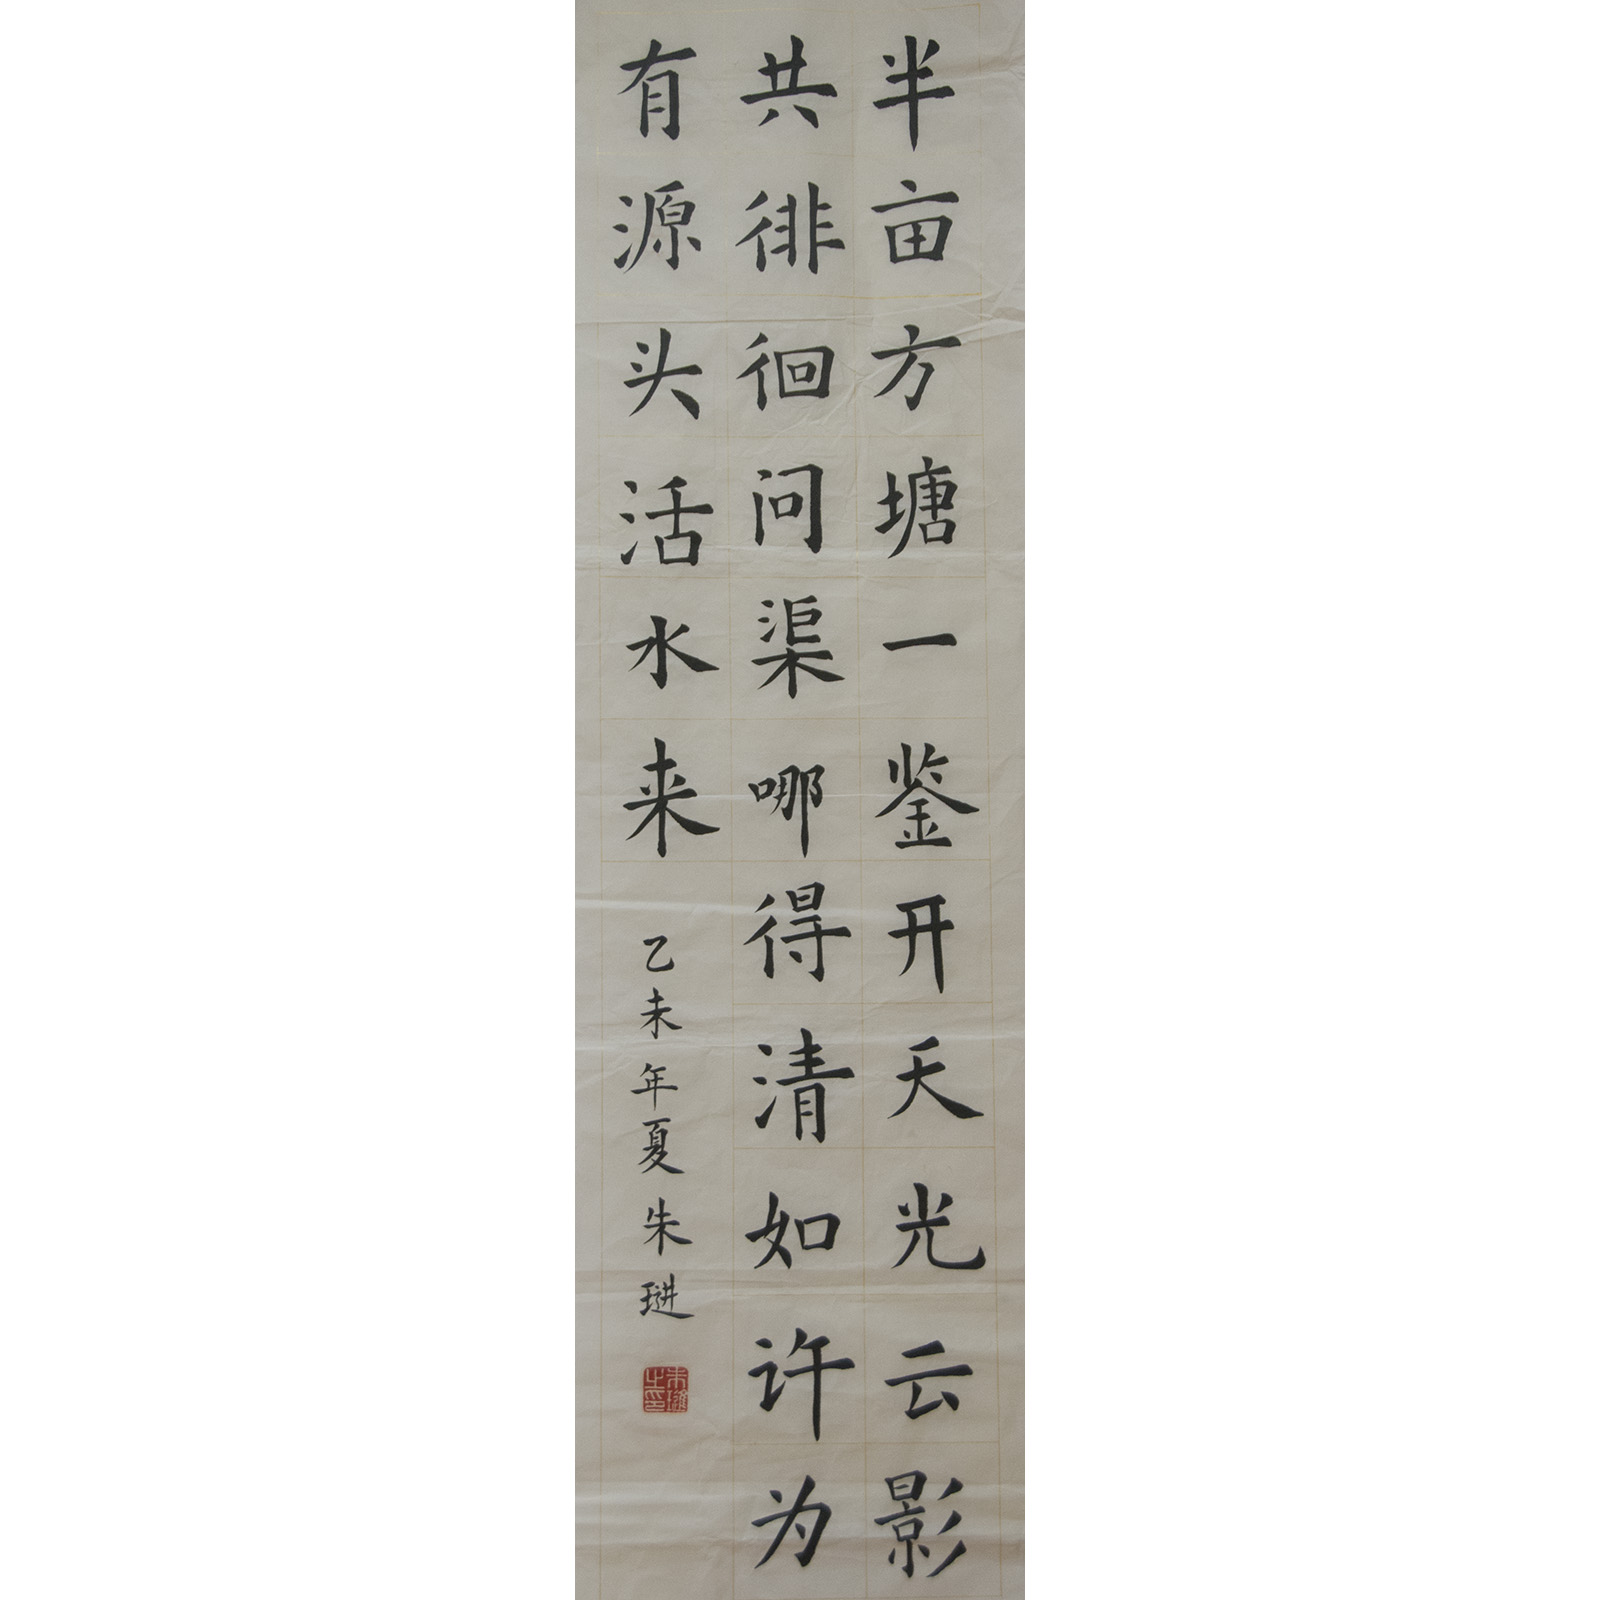 半亩方塘一鉴开天光云影
共徘徊问渠哪得清如许为
有源头活水来
乙未年夏朱琎